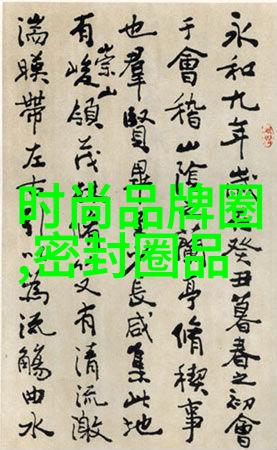 时尚品牌圈
,密封圈品
永和九年歲在癸丑暮春之初會
于會稽山陰蘭亭脩稧事
也羣賢畢長咸集此地
有崇山峻領茂脩又有清流激
湍暎帶左右引以為流觴曲水